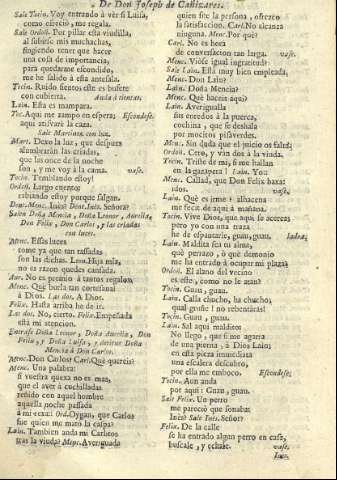 De Don Joseph de Cañizares.
Sale Tocin. Voy entrando à vèr si Luisa,
como ofreciò, me regala.
Sale Ordoñ. Por pillar esta viudilla,
al subirse mis muchachas,
fingiendo tener que hacer
una cosa de importancia,
para quedarme escondido,
me he salido à esta antesala.
Tocin. Ruido siento: este es bufete
con cubierta.
Lain. Esta es mampara.
Toc. Aqui me zampo en espera; Escondese.
aqui
Sale Martinez con luz.
Mart. Dexo la luz, que despues
alumbraràn las criadas,
que las once de la noche
son, y me voy à la cama. vase.
Tocin. Temblando estoy!
Ordoñ. Largo cuento:
rabiando estoy porque salgan.
Dent. Menc. Inès? Dent. Inès. Señora?
Salen Doña Mencia, Doña Leonor, Aurelia,
Don Felix, Don Carlos, y las criadas
con luces.
Menc. Essas luces
como ya que tan rassadas
son las dichas. Leon. Hija mia,
no es razon quedes cansada.
Aur. No es premio à tantos regalos.
Menc. Què burla tan cortesana!
à Dios. Las dos. A Dios.
Felix. Hasta arriba he de ir.
Las dos. No, cierto. Felix. Empeñada
està mi atencion.
Entranse Doña Leonor, Doña Aurelia, Don
Felix, y Doña Luisa, y detiene Doña
Mencia à Don Carlos.
Menc. Don Carlos? Carl. Què quereis?
Menc. Una palabra:
si vuestra quexa no es mas,
que el aver à cuchilladas
reñido con aquel hombre
aquella noche passada
à mi rexa: Ord. Oygan, que Carlos
fue quien me matò la caspa?
Lain. Tambien anda mi Carlicos
tras la viuda? Menc. Averiguada
quien fue la persona, ofrezco
la satisfaccion. Carl. No alcanza
ninguna. Menc. Por què?
Carl. No es hora
de conversacion tan larga. vase.
Menc. Viòse igual ingratitud?
Sale Lain. Està muy bien empleada,
Menc. Don Lain?
Lain. Doña Mencia?
Menc. Què haceis aqui?
Lain. Averigualla
sus enredos à la puerca,
cochina, que se deshala
por mocitos pisaverdes.
Menc. Sin duda que el juicio os falta;
Ordoñ. Cerro, y vàn dos à la viuda.
Tocin. Triste de mi, si me hallan
en la gazapera! Lain. Yo:
Menc. Callad, que Don Felix baxa:
idos. vase.
Lain. Què es irme? alhacena
me fecit de aqui à mañana.
Tocin. Vive Dios, que aqui se acerca;
pero yo con una traza
he de espantarle, guau, guau. ladra.
Lain. Maldita sea tu alma,
què perrazo, ò què demonio
me ha entrado à ocupar mi plaza?
Ordoñ. El alano del vecino
es este, como no le atan?
Tocin. Guau, guau.
Lain. Calla chucho, ha chucho,
qual gruñe! no rebentàras!
Tocin. Guau, guau.
Lain. Sal aqui maldito:
No llego, que si me agarra
de una pierna, à Dios Lain;
en esta pieza inmediata
una escalera descubro,
por ella me emboco. Escondese.
Tocin. Aun anda
por aqui: Guau, guau.
Sale Felix. Un perro
me pareciò que sonaba:
Inès? Sale Inès. Señor?
Felix. De la calle
se ha entrado algun perro en casa,
buscale, y echale. vase.